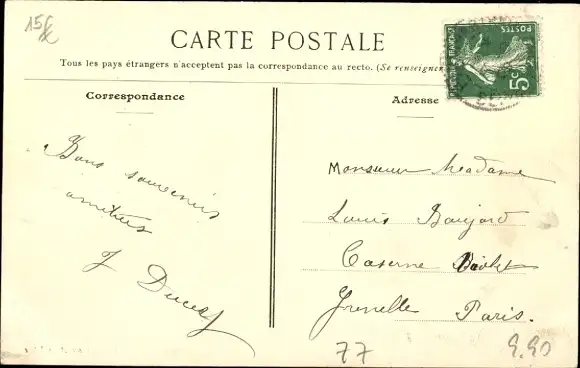 15€
CARTE POSTALE
Tous les pays étrangers n'acceptent pas la correspondance au recto. (Se renseigner
Correspondance
Adresse
POSTES
5c
Bons souvenirs
amitiés
J
Monsieur Madame
Louis Baujard
Caserne
Grenelle Paris.
77
9.90